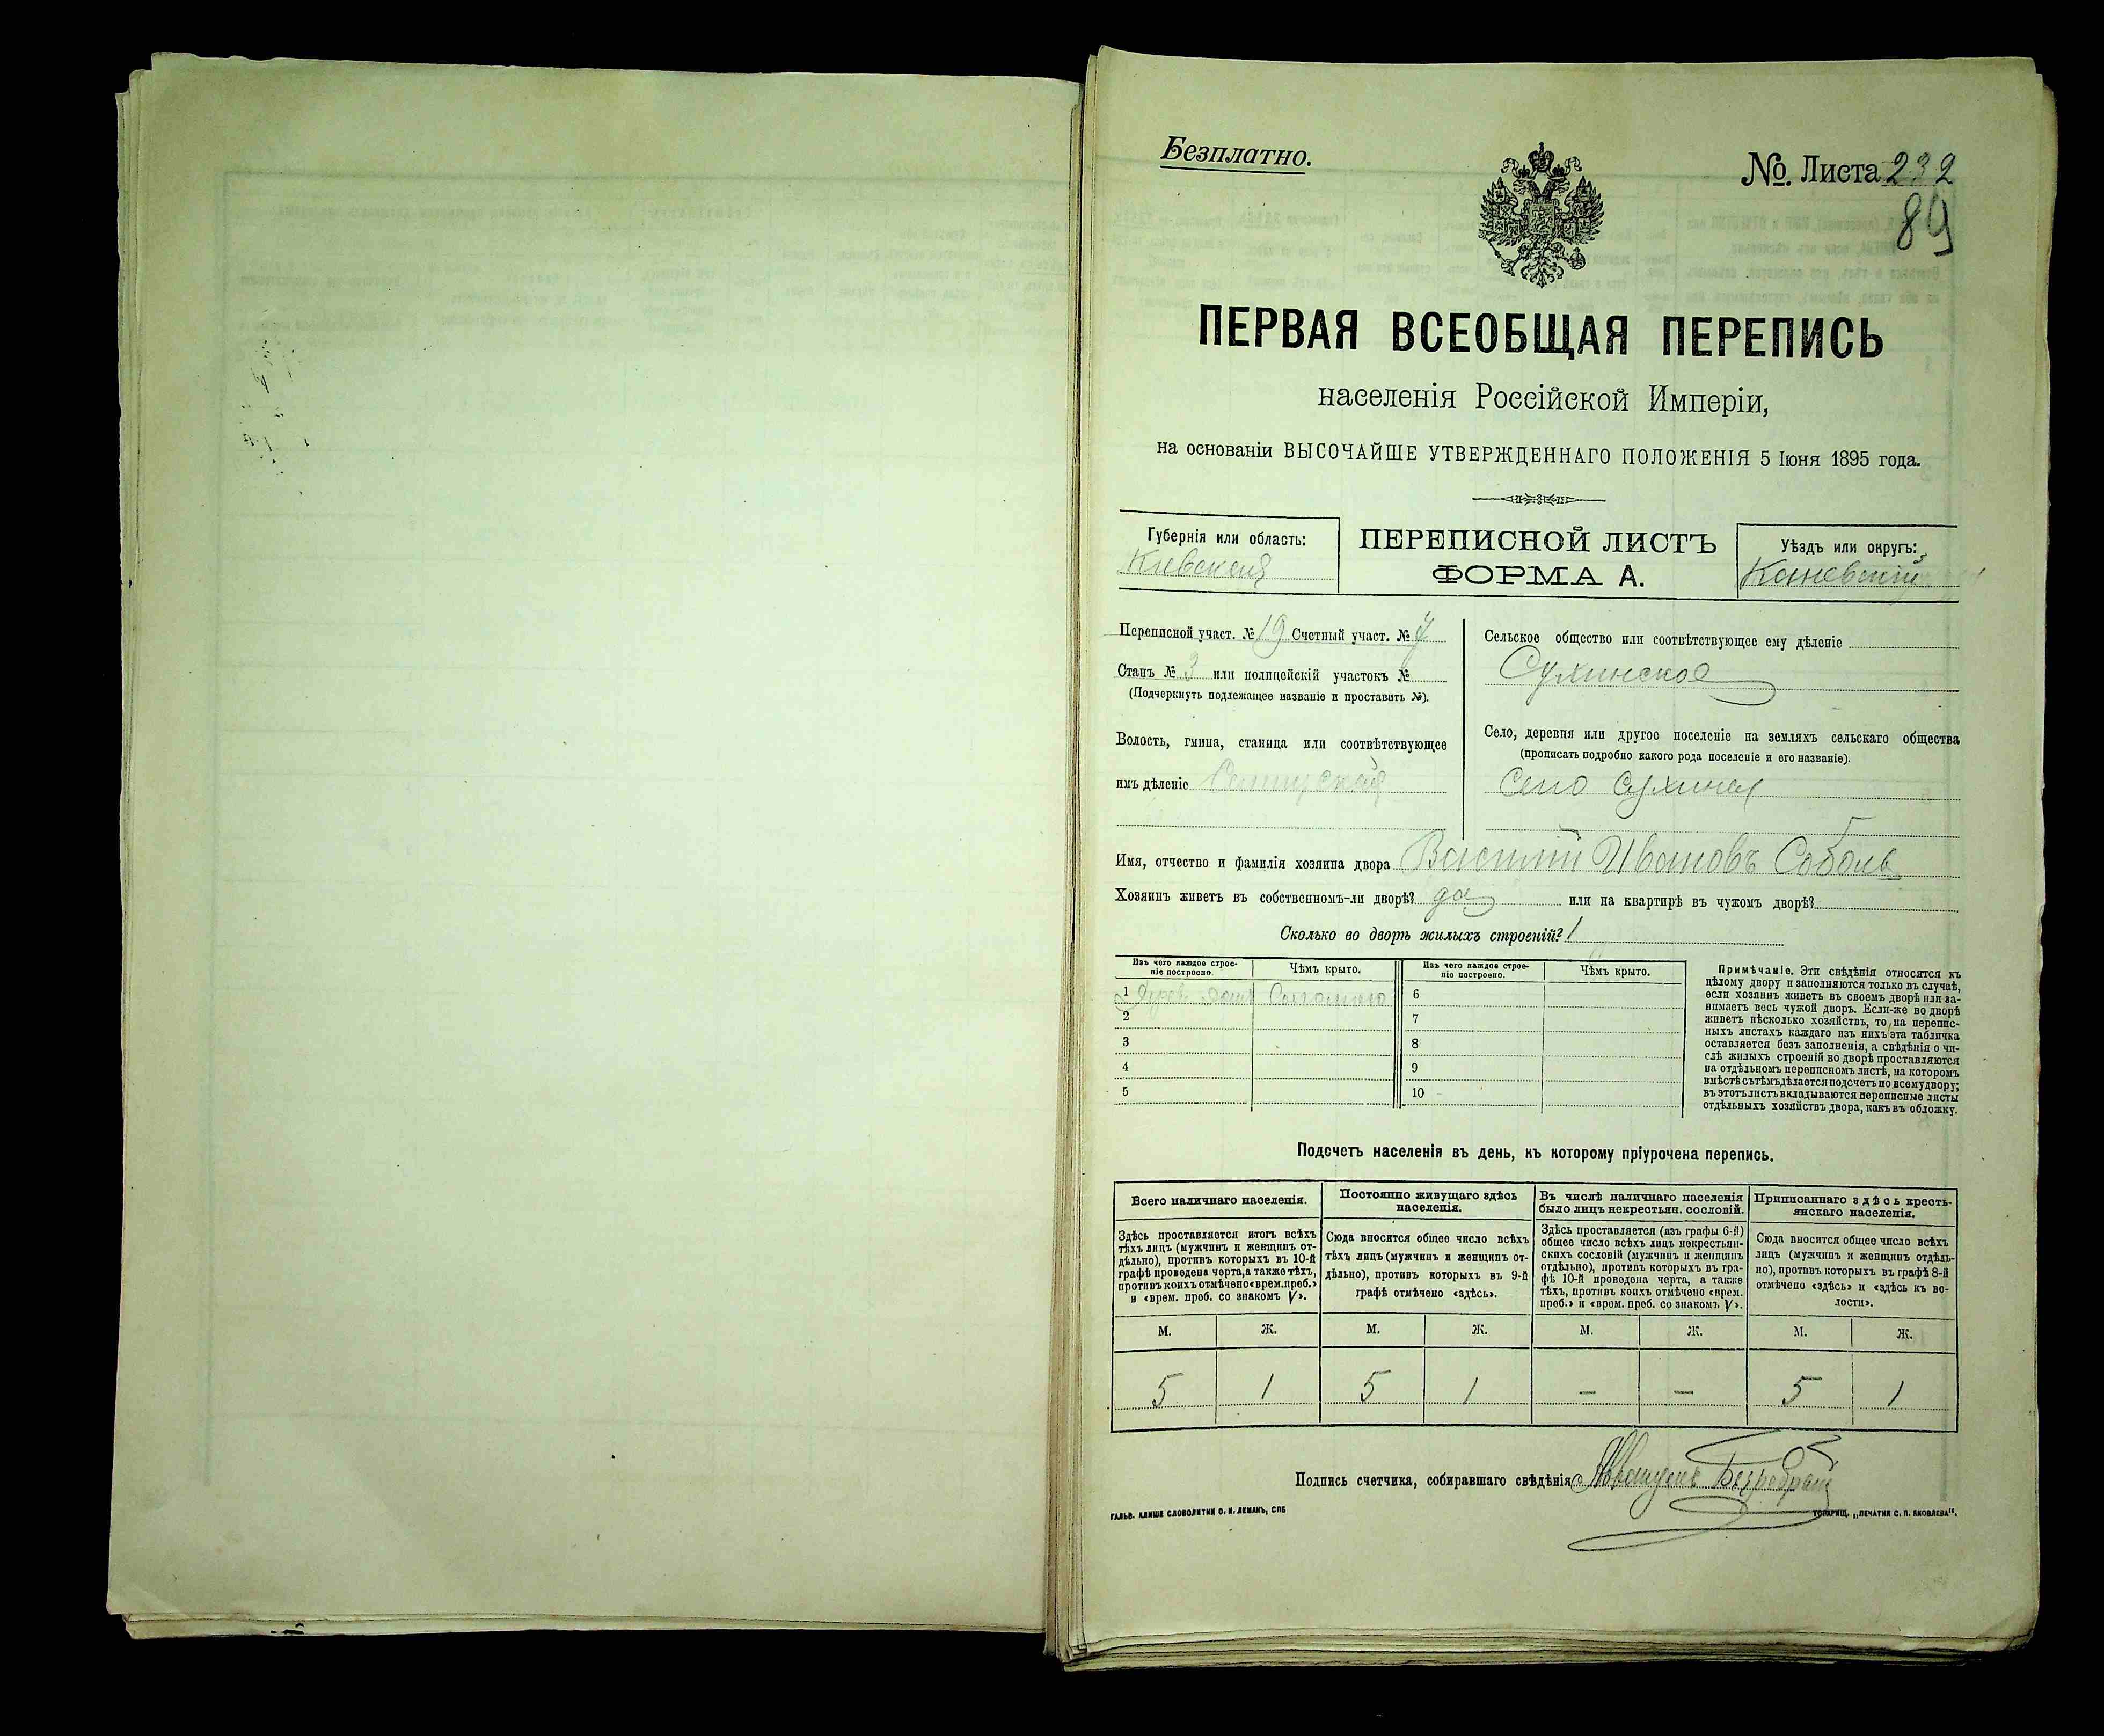 Безплатно.
№. Листа 232
89
ПЕРВАЯ ВСЕОБЩАЯ ПЕРЕПИСЬ
населенія Россійской Имперіи,
на основаніи ВЫСОЧАЙШЕ УТВЕРЖДЕННАГО ПОЛОЖЕНІЯ 5 Іюня 1895 года.
Губернія или область:
Кіевская
ПЕРЕПИСНОЙ ЛИСТЪ
ФОРМА А.
Уѣздъ или округъ:
Каневскій
Переписной участ. № 19 Счетный участ. №
Станъ № 3 или полицейскій участокъ №
(Подчеркнуть подлежащее названіе и проставить №).
Волость, гмина, станица или соотвѣтствующее
имъ дѣленіе
Сельское общество или соотвѣтствующее ему дѣленіе
Сухинское
Село, деревня или другое поселеніе на земляхъ сельскаго общества
(прописать подробно какого рода поселеніе и его названіе).
Село Сухины
Имя, отчество и фамилія хозяина двора Василій Ивановъ Соболь
Хозяинъ живетъ въ собственномъ-ли дворѣ? да или на квартирѣ въ чужомъ дворѣ?
Сколько во дворѣ жилыхъ строеній? 1
Изъ чего каждое строе-
ніе построено.
Чѣмъ крыто.
Изъ чего каждое строе-
ніе построено.
Чѣмъ крыто.
1 Дерев. Соломою 6
2 7
3 8
4 9
5 10
Примѣчаніе. Эти свѣдѣнія относятся къ
цѣлому двору и заполняются только въ случаѣ,
если хозяинъ живетъ въ своемъ дворѣ или за-
нимаетъ весь чужой дворъ. Если-же во дворѣ
живетъ нѣсколько хозяйствъ, то на перепис-
ныхъ листахъ каждаго изъ нихъ эта табличка
оставляется безъ заполненія, а свѣдѣнія о чи-
слѣ жилыхъ строеній во дворѣ проставляются
на отдѣльномъ переписномъ листѣ, на которомъ
вмѣстѣ съ тѣмъ дѣлается подсчетъ по всему двору;
въ этотъ листъ вкладываются переписные листы
отдѣльныхъ хозяйствъ двора, какъ въ обложку.
Подсчетъ населенія въ день, къ которому пріурочена перепись.
Всего наличнаго населенія.
Здѣсь проставляется итогъ всѣхъ
тѣхъ лицъ (мужчинъ и женщинъ от-
дѣльно), противъ которыхъ въ 10-й
графѣ проведена черта, а также тѣхъ,
противъ коихъ отмѣчено «врем. преб.»
и «врем. преб. со знакомъ V».
Постоянно живущаго здѣсь
населенія.
Сюда вносится общее число всѣхъ
тѣхъ лицъ (мужчинъ и женщинъ от-
дѣльно), противъ которыхъ въ 9-й
графѣ отмѣчено «здѣсь».
Въ числѣ наличнаго населенія
было лицъ некрестьян. сословій.
Здѣсь проставляется (изъ графы 6-й)
общее число всѣхъ лицъ некрестьян-
скихъ сословій (мужчинъ и женщинъ
отдѣльно), противъ которыхъ въ гра-
фѣ 10-й проведена черта, а также
тѣхъ, противъ коихъ отмѣчено «врем.
преб.» и «врем. преб. со знакомъ V».
Приписаннаго здѣсь кресть-
янскаго населенія.
Сюда вносится общее число всѣхъ
лицъ (мужчинъ и женщинъ отдѣль-
но), противъ которыхъ въ графѣ 8-й
отмѣчено «здѣсь» и «здѣсь къ во-
лости».
М. Ж. М. Ж. М. Ж. М. Ж.
5 1 5 1 – – 5 1
Подпись счетчика, собиравшаго свѣдѣнія
ГАЛЬВ. КЛИШЕ СЛОВОЛИТНИ О. И. ЛЕМАНЪ, СПБ
ТОВАРИЩ. „ПЕЧАТНЯ С. П. ЯКОВЛЕВА".